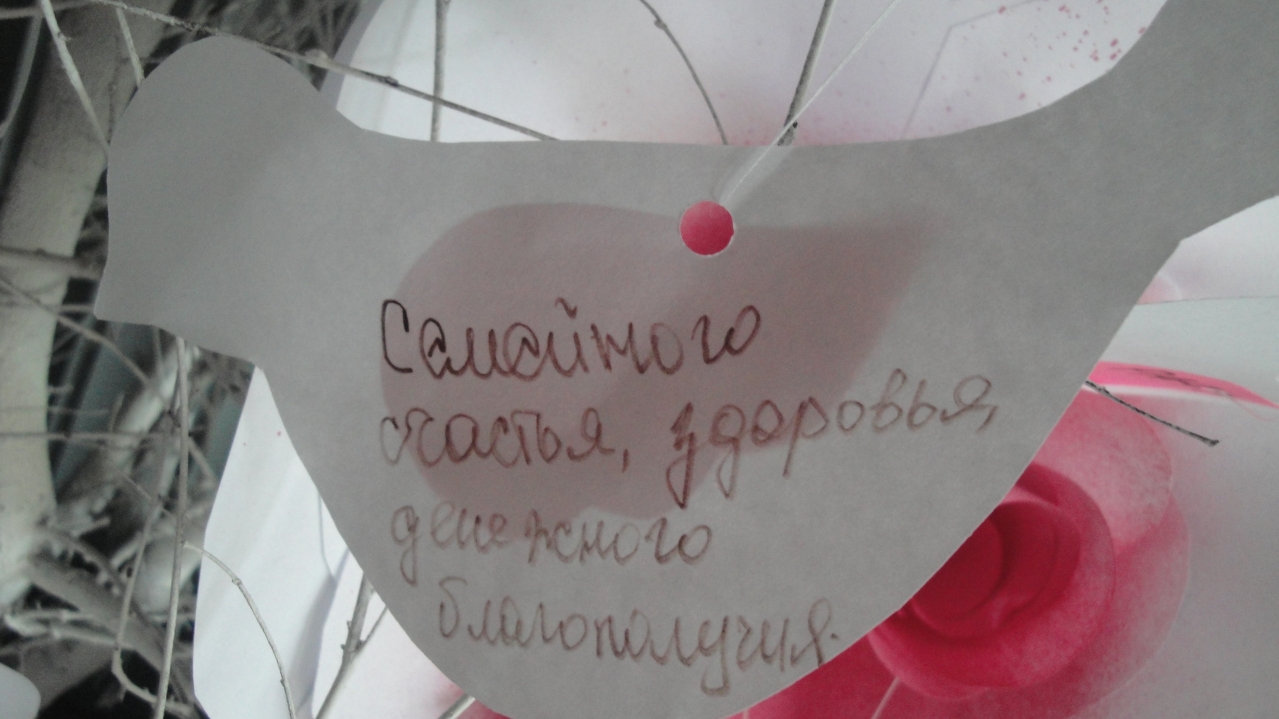 Семейного
счастья, здоровья,
денежного
благополучия.